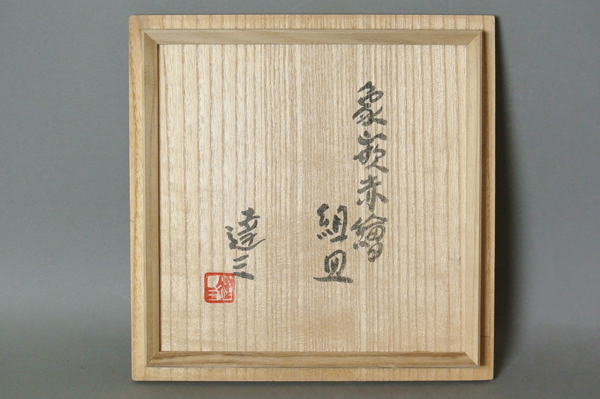 象嵌赤繪
組皿
達三